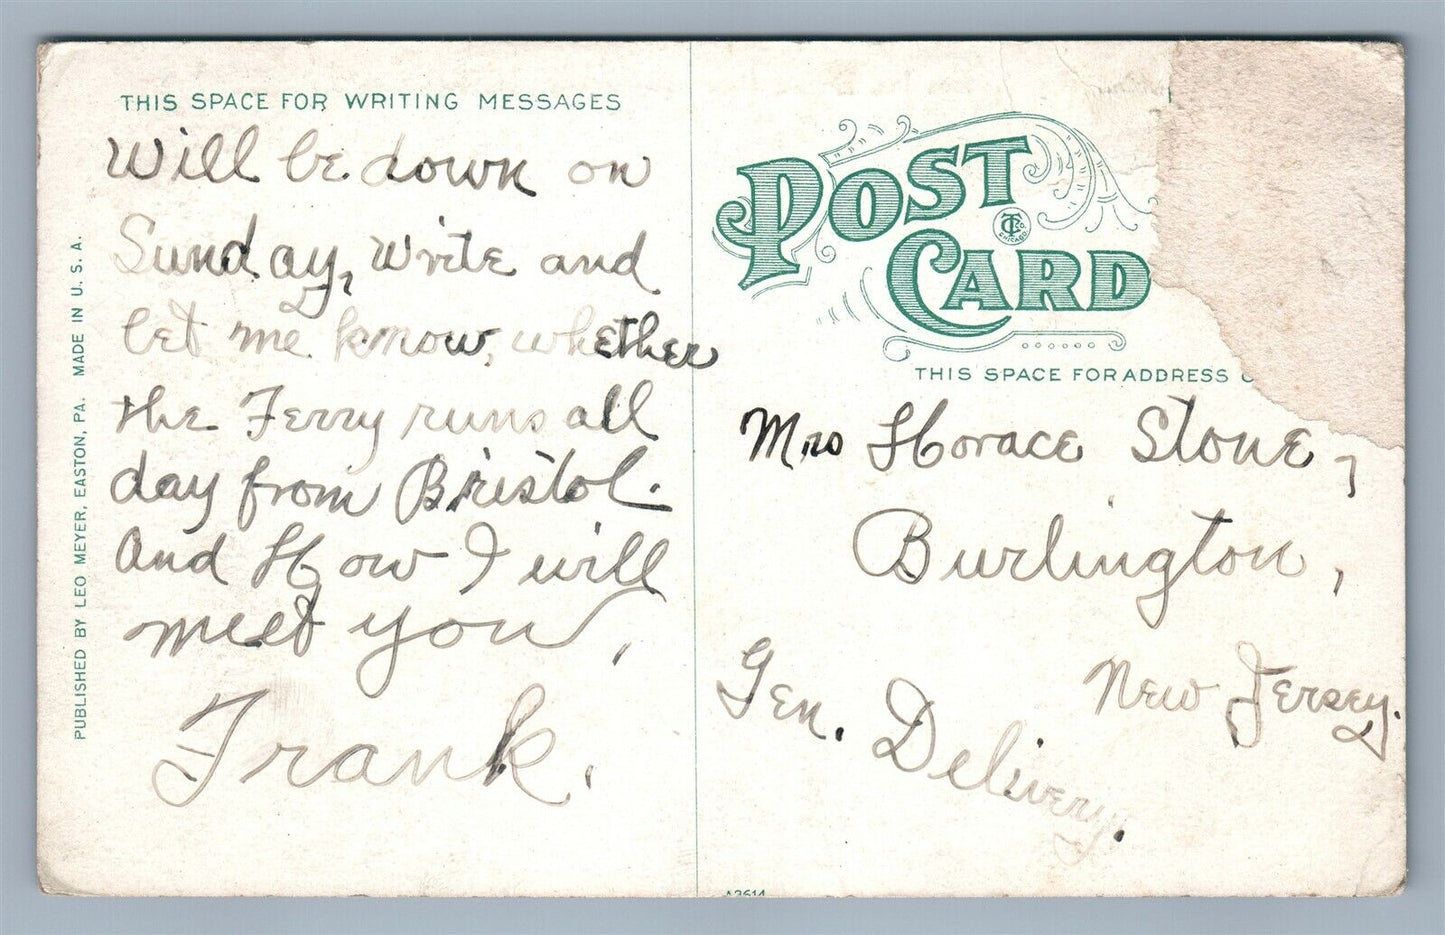 THIS SPACE FOR WRITING MESSAGES
Will be down on
Sunday, write and
let me know, whether
the Ferry runs all
day from Bristol.
And How I will
meet you,
Frank.
PUBLISHED BY LEO MEYER, EASTON, PA. MADE IN U. S. A.
POST
CARD
CT CO.
CHICAGO
THIS SPACE FOR ADDRESS O
Mrs Horace Stone,
Burlington,
New Jersey.
Gen. Delivery.
A3614